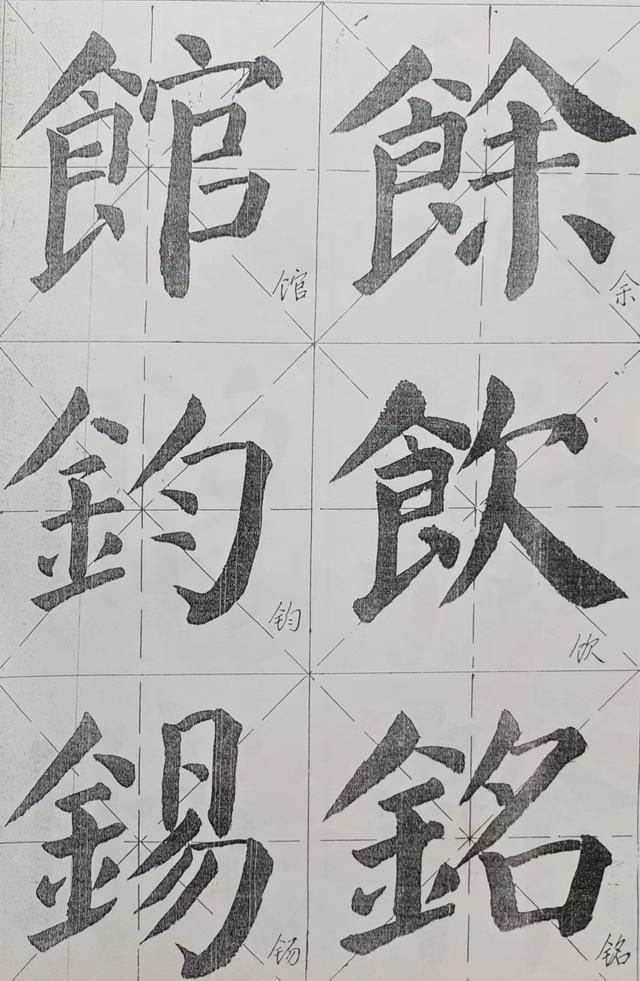 餘
余
飲
饮
銘
铭
館
馆
鈞
钧
錫
钖